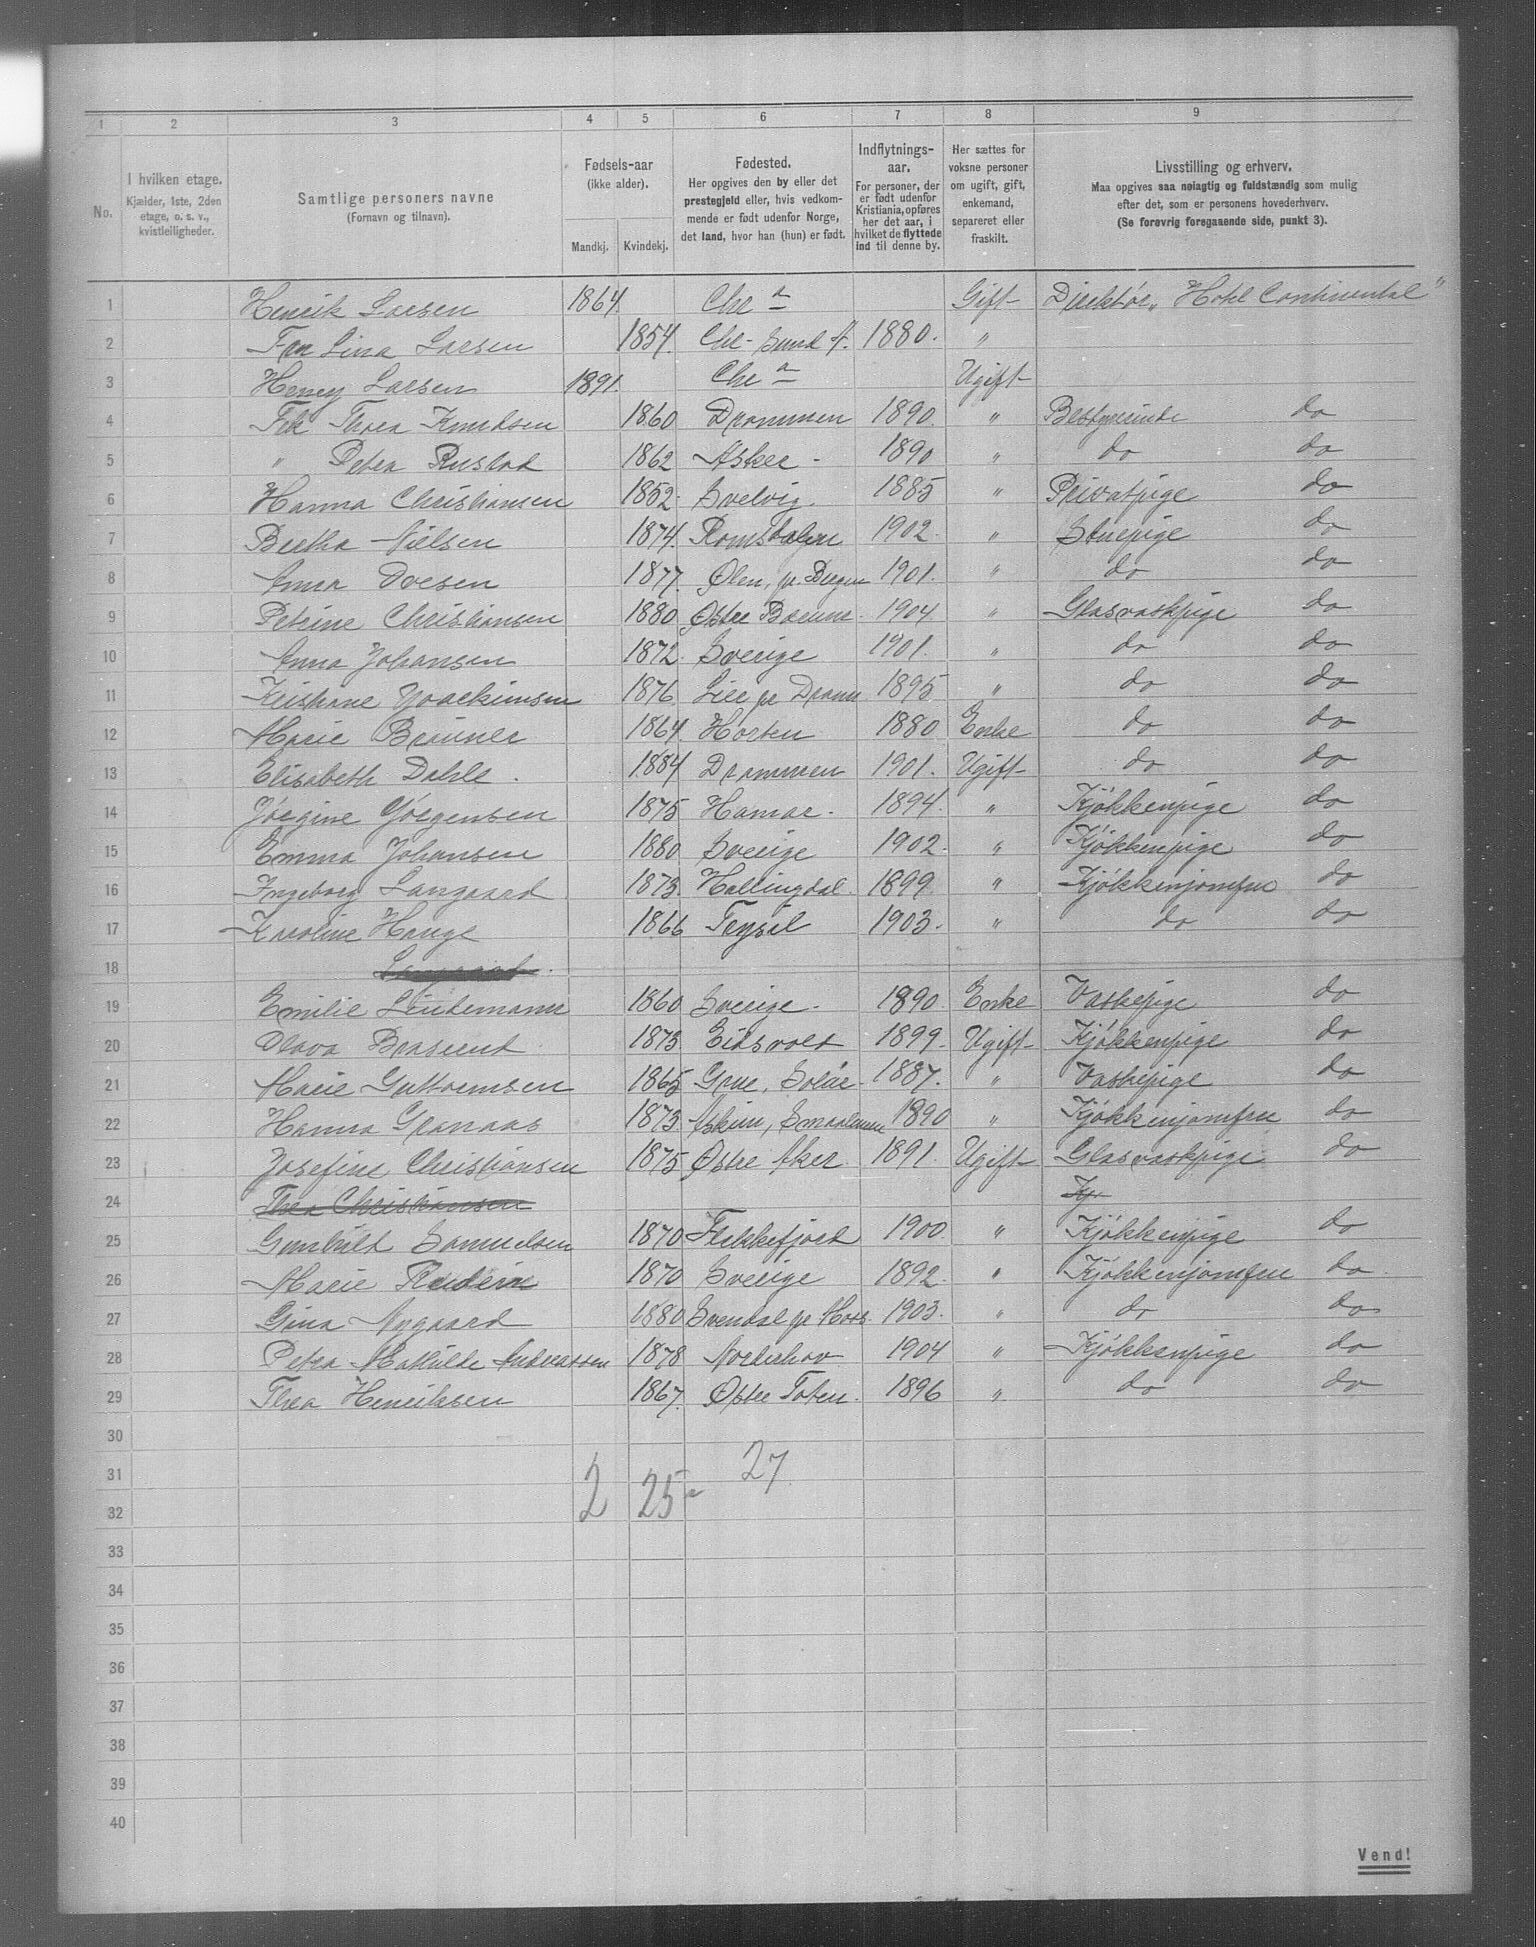 1 2 3 4 5 6 7 8 9
No.
I hvilken etage.
Kjælder, 1ste, 2den
etage, o. s. v.,
kvistleiligheder.
Samtlige personers navne
(Fornavn og tilnavn).
Fødsels-aar
(ikke alder).
Mandkj. Kvindekj.
Fødested.
Her opgives den by eller det
prestegjeld eller, hvis vedkom-
mende er født udenfor Norge,
det land, hvor han (hun) er født.
Indflytnings-
aar.
For personer, der
er født udenfor
Kristiania, opføres
her det aar, i
hvilket de flyttede
ind til denne by.
Her sættes for
voksne personer
om ugift, gift,
enkemand,
separeret eller
fraskilt.
Livsstilling og erhverv.
Maa opgives saa nøiagtig og fuldstændig som mulig
efter det, som er personens hovederhverv.
(Se forøvrig foregaaende side, punkt 3).
1 Henrik Larsen 1864. Chr a Gift Direktør, "Hotel Continental"
2 Fru Lina Larsen 1854. Chr. Sund 1880. "
3 Henry Larsen 1891. Chr a Ugift
4 Frk Thora Knudsen 1860 Drammen 1890. " Bestyrerinde do
5 " Petra Rustad 1862 Asker - 1890 " do do
6 Hanna Christiansen 1852. Svelvig. 1885 " Privatpige do
7 Bertha Nielsen 1874. Romsdalen 1902. " Stuepige do
8 Anna Ovesen 1877. Ølen, pr. Bergen 1901. " do do
9 Petrine Christiansen 1880 Østre Bærum 1904 " Glasvaskpige do
10 Anna Johansen 1872. Sverige 1901. " do do
11 Kristiane Joackimsen 1876. Lier pr Dramn 1895 " do do
12 Marie Brauner 1864. Horten 1880 Enke do do
13 Elisabeth Dahle. 1884 Drammen 1901. Ugift do do
14 Jørgine Jørgensen 1875 Hamar. 1894. " Kjøkkenpige do
15 Emma Johansen 1880 Sverige 1902. " Kjøkkenpige do
16 Ingeborg Langaard 1873. Hallingdal 1899 " Kjøkkenjomfru do
17 Karoline Hauge 1866 Trysil 1903. " do do
18 Langaard.
19 Emilie Lindemann 1860 Sverige. 1890 Enke Vaskepige do
20 Olava Brasrud 1873. Eidsvold 1899. Ugift Kjøkkenpige do
21 Marie Guttormsen 1865 Grue, Solør 1887. " Vaskepige do
22 Hanna Granaas 1873. Askim, Smaalenene 1890 " Kjøkkenjomfru do
23 Josefine Christiansen 1875 Østre Aker 1891. Ugift Glasvaskpige do
24 Thea Christiansen Kj
25 Gunhild Samuelsen 1870 Flekkefjord 1900. " Kjøkkenpige do
26 Marie 1870 Sverige 1892. " Kjøkkenjomfru do.
27 Gina Nygaard 1880 Svendal pr Moss. 1903. " do do
28 Petra Mathilde Andreassen 1878 Norderhov 1904 " Kjøkkenpige do
29 Thea Henriksen 1867. Østre Toten. 1896 " do do
30
31 27
32 2 25
33
34
35
36
37
38
39
40
Vend!